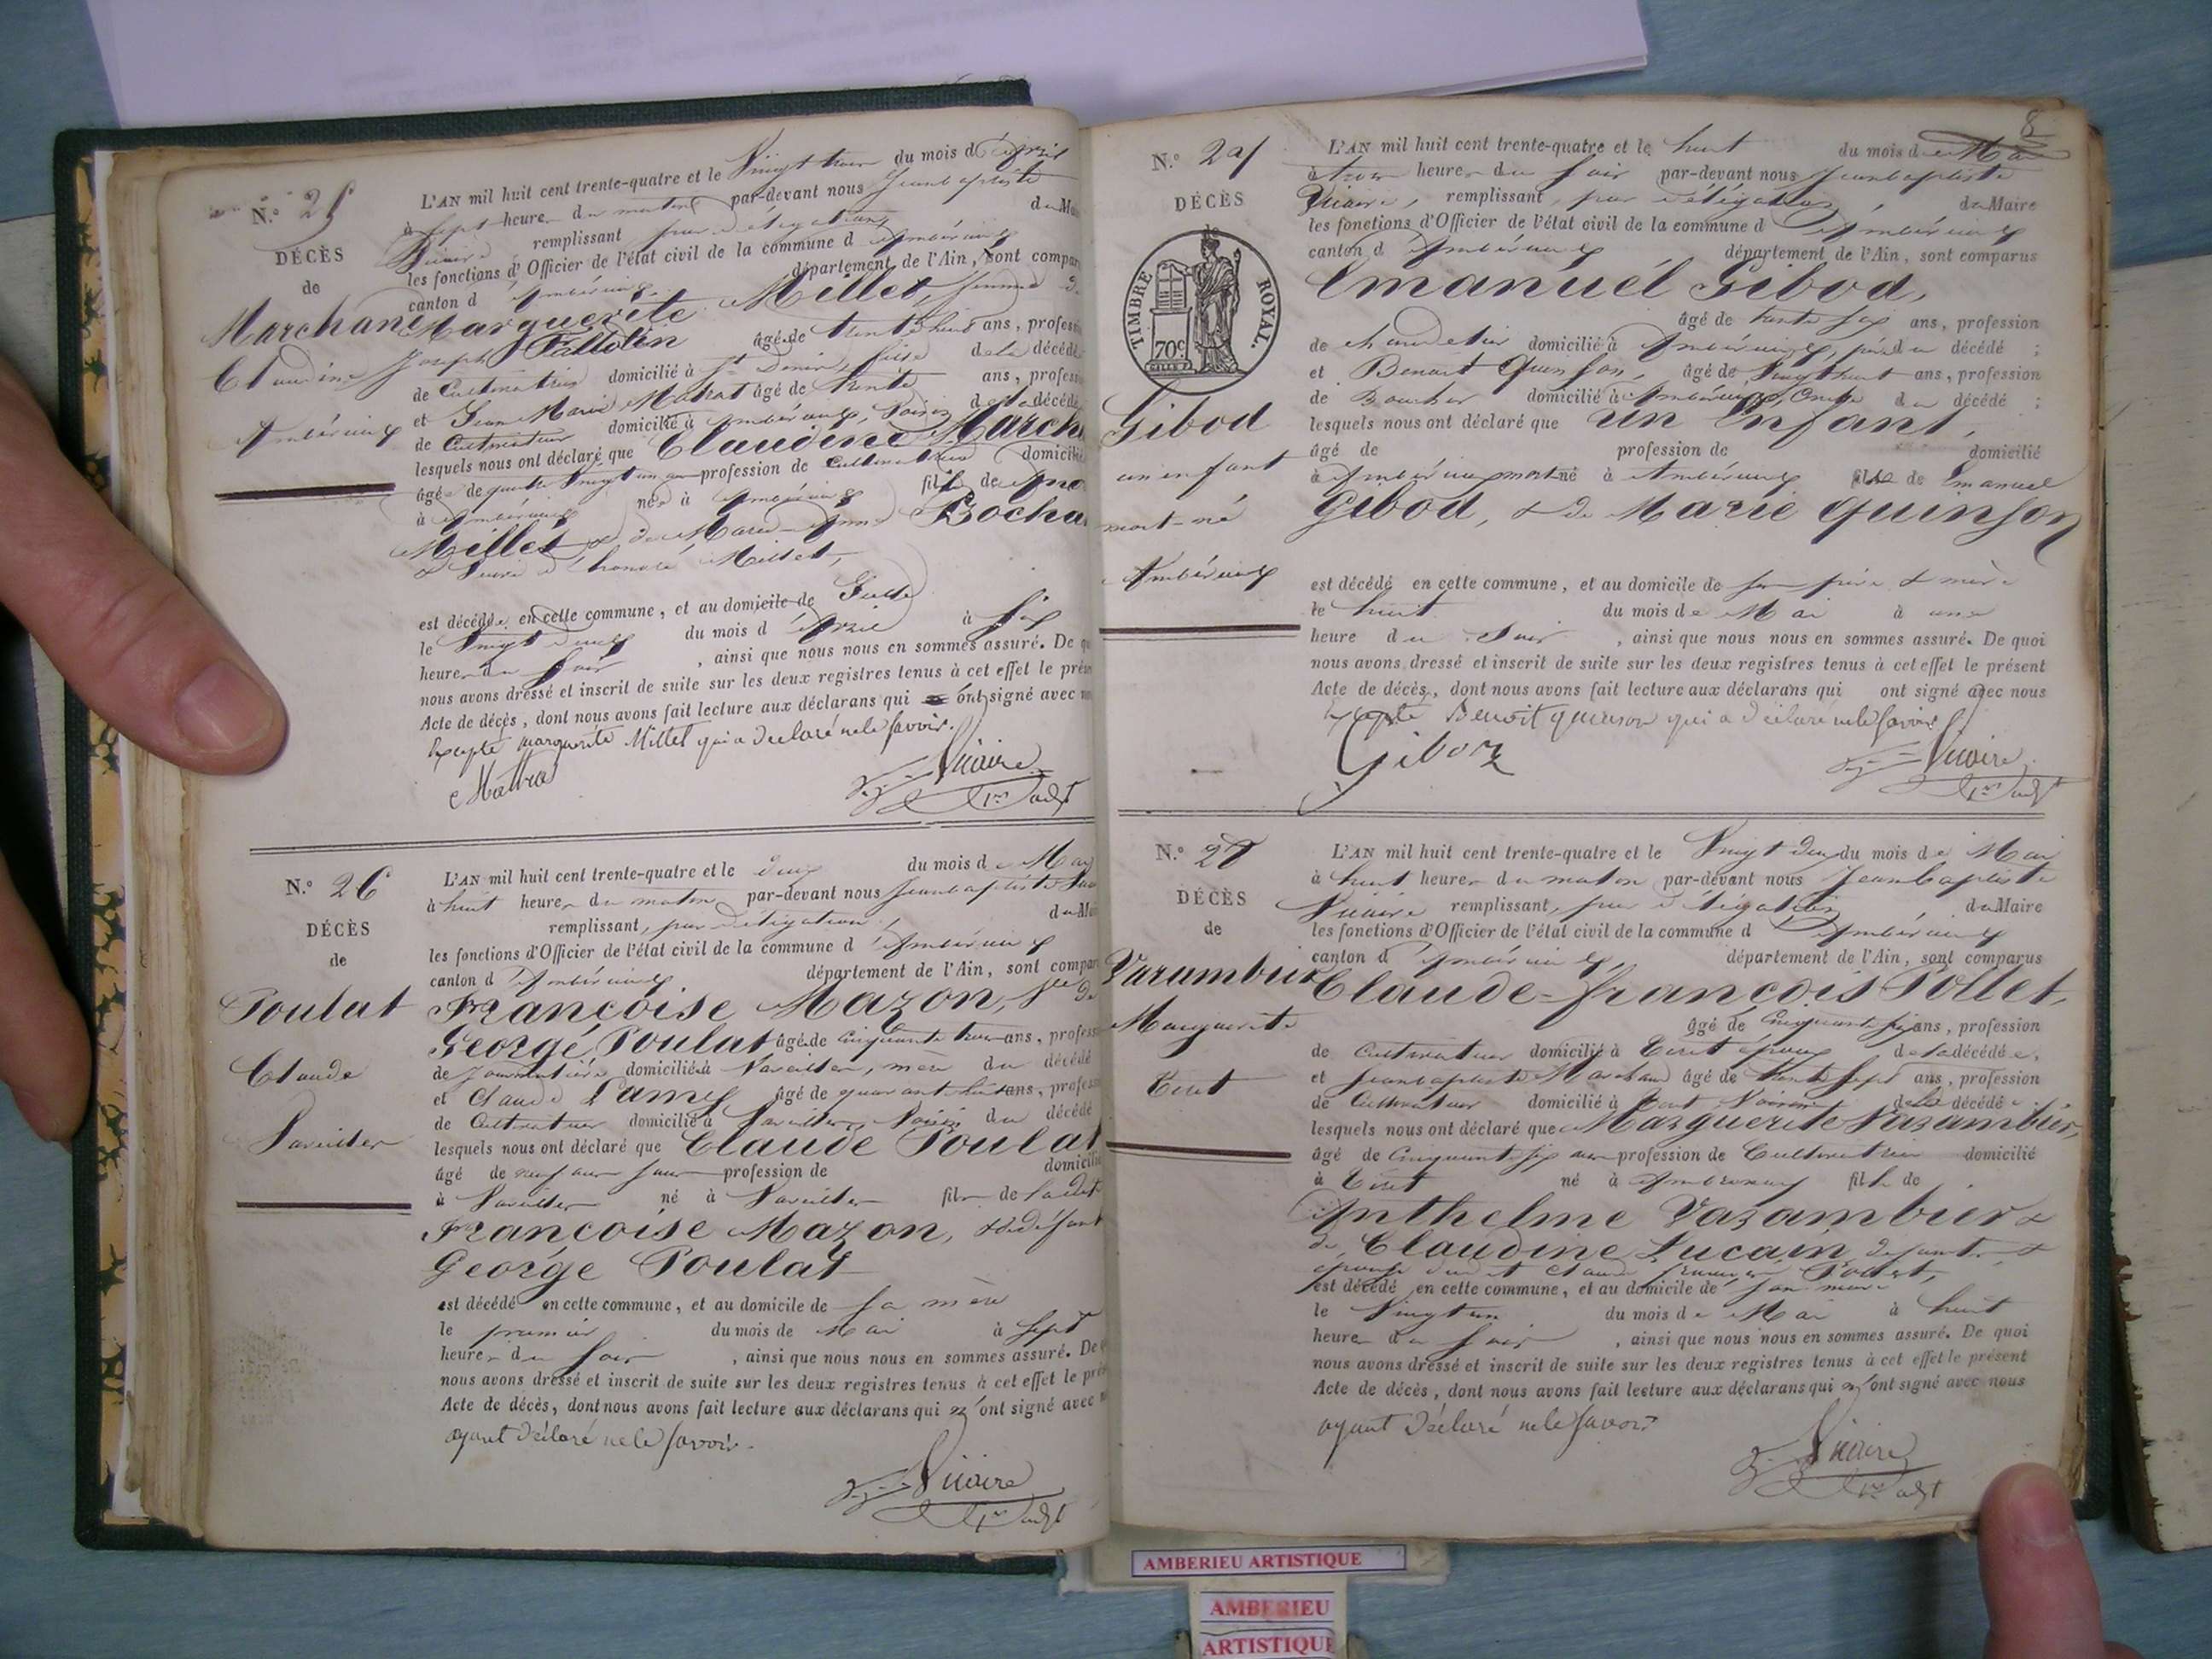 N.° 25
DÉCÈS
de
Marchand
Claudine
Ambérieux
L'AN mil huit cent trente-quatre et le Vingt trois du mois d'avril
à sept heures du matin par-devant nous Jeanbaptiste
Vicaire remplissant par délégation du Mai
les fonctions d'Officier de l'état civil de la commune d'Ambérieux
canton d'Ambérieux département de l'Ain, sont compar
Marguerite Millet, femme de
Joseph Pallotin âgé de trente huit ans, profess
de Cultivatrice domicilié à St Denis, de la décédé
et Jean Marie âgé de trente ans, profess
de Cultivateur domicilié à Ambérieux, Voisin de la décédé
lesquels nous ont déclaré que Claudine March
âgé de quatre Vingt un ans profession de Cultivatrice domicilié
à Ambérieux née à Ambérieux fille de
Millet, & de Marie Anne Bocha
& Veuve d' honoré Millet,
est décédée en cette commune, et au domicile de
le Vingt deux du mois d'avril à Six
heures du Soir, ainsi que nous nous en sommes assuré. De q
nous avons dressé et inscrit de suite sur les deux registres tenus à cet effet le prése
Acte de décès, dont nous avons fait lecture aux déclarans qui ont signé avec n
Excepté marguerite Millet qui a declaré ne le savoir.
Vicaire
1er adjt
N.° 26
DÉCÈS
de
Poulat
Claude
Vareilles
L'AN mil huit cent trente-quatre et le deux du mois de Mai
à huit heures du matin par-devant nous Jeanbaptiste Vic
remplissant, par délégation, du Mai
les fonctions d'Officier de l'état civil de la commune d'Ambérieux
canton d'Ambérieux département de l'Ain, sont compar
Françoise Mazon, Vve de
George Poulat âgé de Cinquante trois ans, profess
de Journalière domicilié à Vareilles, mère du décédé
et Claude Lamy âgé de quarant huit ans, profess
de Cultivateur domicilié à Vareilles, Voisin du décédé
lesquels nous ont déclaré que Claude Poulat
âgé de neuf ans profession de domicilié
à Vareilles né à Vareilles fils de ladite
Françoise Mazon, & de défunt
George Poulat
est décédé en cette commune, et au domicile de sa mère
le premier du mois de Mai à Sept
heures du Soir, ainsi que nous nous en sommes assuré. De
nous avons dressé et inscrit de suite sur les deux registres tenus à cet effet le pré
Acte de décès, dont nous avons fait lecture aux déclarans qui n'ont signé avec n
ayant déclaré ne le savoir.
Vicaire
1er adjt
8
N.° 27
DÉCÈS
de
TIMBRE ROYAL.
70c
Gibod
un enfant
mort-né
Ambérieux
L'AN mil huit cent trente-quatre et le huit du mois de Mai
à trois heures du Soir par-devant nous Jeanbaptiste
Vicaire, remplissant, par délégation, du Maire
les fonctions d'Officier de l'état civil de la commune d'Ambérieux
canton d'Ambérieux département de l'Ain, sont comparus
Emanuel Gibod,
âgé de trente six ans, profession
de domicilié à Ambérieux, père du décédé;
et Benoit Quinson, âgé de Vingt huit ans, profession
de Boucher domicilié à Ambérieux, Oncle du décédé;
lesquels nous ont déclaré que un Enfant,
âgé de profession de domicilié
à Ambérieux mort né à Ambérieux fils de Emanuel
Gibod, & de Marie Quinson
est décédé en cette commune, et au domicile de ses père & mère
le huit du mois de Mai à une
heure du Soir, ainsi que nous nous en sommes assuré. De quoi
nous avons dressé et inscrit de suite sur les deux registres tenus à cet effet le présent
Acte de décès, dont nous avons fait lecture aux déclarans qui ont signé avec nous
Excepté Benoit quinson qui a déclaré ne le savoir
Gibod
Vicaire
1er adjt
N.° 28
DÉCÈS
de
Varambier
Marguerite
Tiret
L'AN mil huit cent trente-quatre et le Vingt deux du mois de Mai
à huit heures du matin par-devant nous Jeanbaptiste
Vicaire remplissant, par délégation du Maire
les fonctions d'Officier de l'état civil de la commune d'Ambérieux
canton d'Ambérieux, département de l'Ain, sont comparus
Claude-françois Pollet,
âgé de Cinquante six ans, profession
de Cultivateur domicilié à Tiret époux de la décédée,
et Jeanbaptiste Marchand âgé de trente sept ans, profession
de Cultivateur domicilié à Tiret Voisin de la décédée
lesquels nous ont déclaré que Marguerite Varambier,
âgé de Cinquante six ans profession de Cultivatrice domicilié
à Tiret né à Ambronay fille de
Anthelme Varambier &
de Claudine Lucain, défunts, &
épouse dudit Claude françois Pollet,
est décédé en cette commune, et au domicile de son mari
le Vingt un du mois de Mai à huit
heures du Soir, ainsi que nous nous en sommes assuré. De quoi
nous avons dressé et inscrit de suite sur les deux registres tenus à cet effet le présent
Acte de décès, dont nous avons fait lecture aux déclarans qui n'ont signé avec nous
ayant déclaré ne le savoir
Vicaire
1er adjt
AMBERIEU ARTISTIQUE
AMBERIEU
ARTISTIQUE